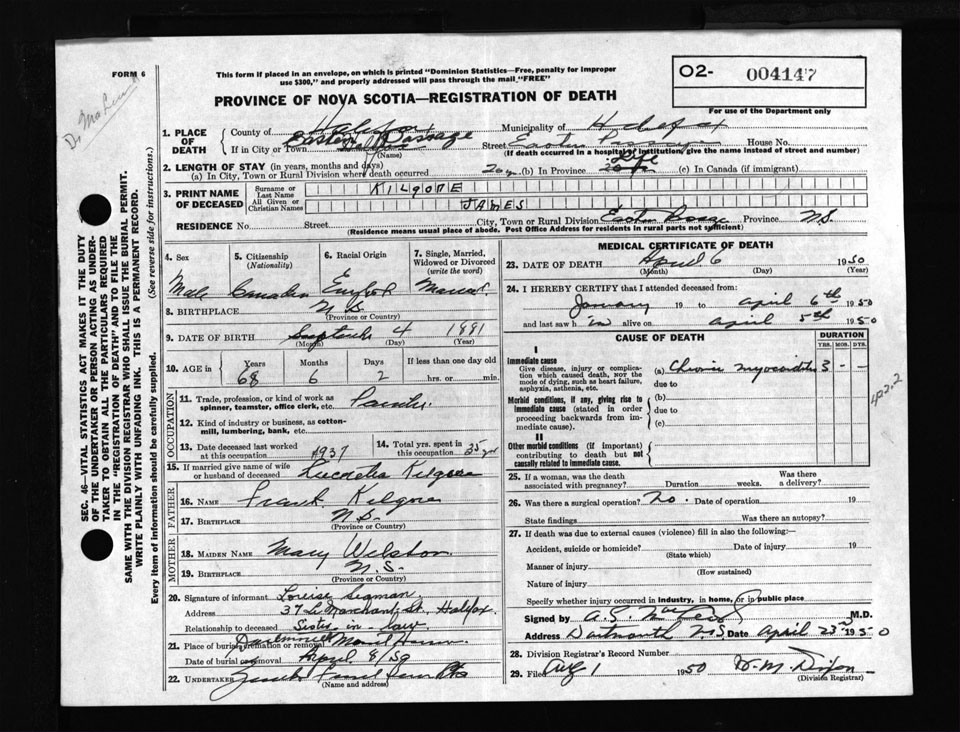 FORM 6
This form if placed in an envelope, on which is printed "Dominion Statistics—Free, penalty for improper
use $300," and properly addressed will pass through the mail "FREE"
O2- 004147
For use of the Department only
PROVINCE OF NOVA SCOTIA—REGISTRATION OF DEATH
SEC. 46—VITAL STATISTICS ACT MAKES IT THE DUTY
OF THE UNDERTAKER OR PERSON ACTING AS UNDER-
TAKER TO OBTAIN ALL THE PARTICULARS REQUIRED
IN THE "REGISTRATION OF DEATH" AND TO FILE THE
SAME WITH THE DIVISION REGISTRAR WHO SHALL ISSUE THE BURIAL PERMIT.
WRITE PLAINLY WITH UNFADING INK. THIS IS A PERMANENT RECORD.
Every item of information should be carefully supplied. (See reverse side for instructions.)
1. PLACE OF DEATH
County of Halifax Municipality of Halifax
If in City or Town Eastern Passage Street Eastern Passage House No.
(Name) (If death occurred in a hospital or institution give the name instead of street and number)
2. LENGTH OF STAY (in years, months and days)
(a) In City, Town or Rural Division where death occurred 20 yr (b) In Province Life (c) In Canada (if immigrant)
3. PRINT NAME OF DECEASED
Surname or Last Name KILGORE
All Given or Christian Names JAMES
RESIDENCE No. Street City, Town or Rural Division Province N.S.
(Residence means usual place of abode. Post Office Address for residents in rural parts not sufficient)
4. Sex
Male
5. Citizenship (Nationality)
Canadian
6. Racial Origin
English
7. Single, Married, Widowed or Divorced (write the word)
Married
8. BIRTHPLACE N.S.
(Province or Country)
9. DATE OF BIRTH 4 1881
(Month) (Day) (Year)
10. AGE in Years Months Days If less than one day old
68 6 2 hrs. or min.
OCCUPATION
11. Trade, profession, or kind of work as spinner, teamster, office clerk, etc. Painter
12. Kind of industry or business, as cotton-mill, lumbering, bank, etc.
13. Date deceased last worked at this occupation 1937
14. Total yrs. spent in this occupation 35 yrs
15. If married give name of wife or husband of deceased Lucretia Kilgore
FATHER
16. NAME Frank Kilgore
17. BIRTHPLACE N.S.
(Province or Country)
MOTHER
18. MAIDEN NAME Mary
19. BIRTHPLACE N.S.
(Province or Country)
20. Signature of informant Louise
Address 37 Le Marchant St. Halifax
Relationship to deceased Sister-in-law
21. Place of burial, cremation or removal
Date of burial or removal April 8/50
22. UNDERTAKER
(Name and address)
MEDICAL CERTIFICATE OF DEATH
23. DATE OF DEATH April 6 1950
(Month) (Day) (Year)
24. I HEREBY CERTIFY that I attended deceased from:
January 19 to April 6th 1950
and last saw him alive on April 5th 1950
CAUSE OF DEATH
DURATION
YRS. MOS. DYS.
I
Immediate cause
Give disease, injury or complication which caused death, not the mode of dying, such as heart failure, asphyxia, asthenia, etc.
(a) Chronic myocarditis 3 - -
due to
Morbid conditions, if any, giving rise to immediate cause (stated in order proceeding backwards from immediate cause).
(b)
due to
(c)
II
Other morbid conditions (if important) contributing to death but not causally related to immediate cause.
422.2
25. If a woman, was the death associated with pregnancy? Duration weeks. Was there a delivery?
26. Was there a surgical operation? No. Date of operation 19
State findings Was there an autopsy?
27. If death was due to external causes (violence) fill in also the following:—
Accident, suicide or homicide? Date of injury 19
(State which)
Manner of injury
(How sustained)
Nature of injury
Specify whether injury occurred in industry, in home, or in public place
Signed by M.D.
Address Dartmouth N.S. Date April 23rd 1950
28. Division Registrar's Record Number
29. Filed Aug 1 1950 D. M. Dixon
(Division Registrar)